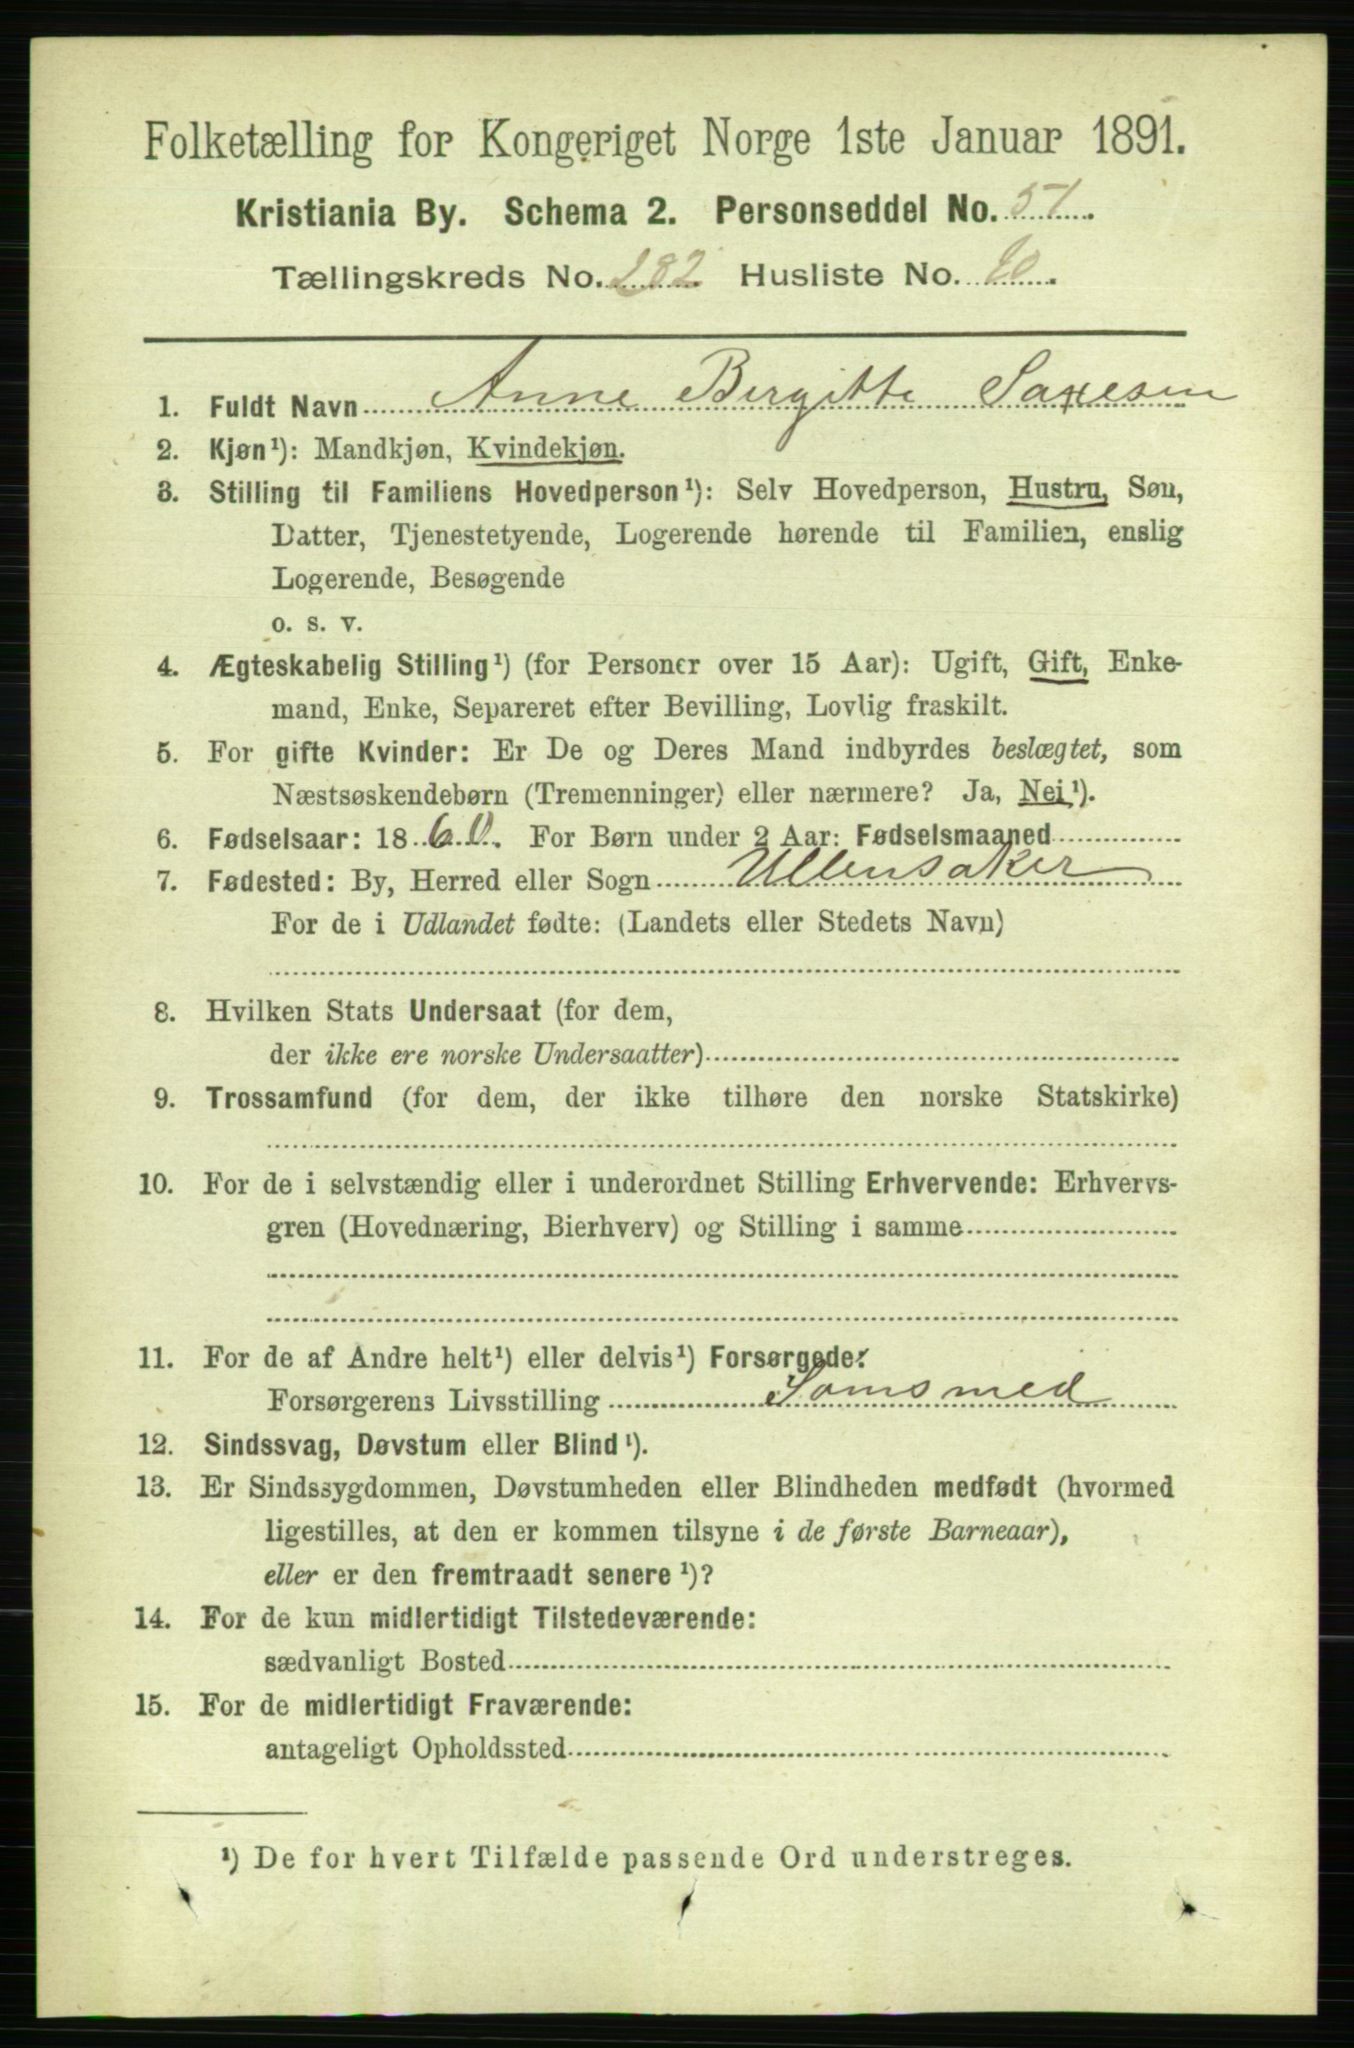 Folketælling for Kongeriget Norge 1ste Januar 1891.
Kristiania By. Schema 2. Personseddel No. 51.
Tællingskreds No. 282. Husliste No.
1. Fuldt Navn Anne Birgitte Saxesen
2. Kjøn¹): Mandkjøn, Kvindekjøn.
3. Stilling til Familiens Hovedperson¹): Selv Hovedperson, Hustru, Søn,
Datter, Tjenestetyende, Logerende hørende til Familien, enslig
Logerende, Besøgende
o. s. v.
4. Ægteskabelig Stilling¹) (for Personer over 15 Aar): Ugift, Gift, Enke-
mand, Enke, Separeret efter Bevilling, Lovlig fraskilt.
5. For gifte Kvinder: Er De og Deres Mand indbyrdes beslægtet, som
Næstsøskendebørn (Tremenninger) eller nærmere? Ja, Nei¹).
6. Fødselsaar: 1860. For Børn under 2 Aar: Fødselsmaaned
7. Fødested: By, Herred eller Sogn Ullensaker
For de i Udlandet fødte: (Landets eller Stedets Navn)
8. Hvilken Stats Undersaat (for dem,
der ikke ere norske Undersaatter)
9. Trossamfund (for dem, der ikke tilhøre den norske Statskirke)
10. For de i selvstændig eller i underordnet Stilling Erhvervende: Erhvervs-
gren (Hovednæring, Bierhverv) og Stilling i samme
11. For de af Andre helt¹) eller delvis¹) Forsørgede:
Forsørgerens Livsstilling Somsmed
12. Sindssvag, Døvstum eller Blind¹).
13. Er Sindssygdommen, Døvstumheden eller Blindheden medfødt (hvormed
ligestilles, at den er kommen tilsyne i de første Barneaar),
eller er den fremtraadt senere¹)?
14. For de kun midlertidigt Tilstedeværende:
sædvanligt Bosted
15. For de midlertidigt Fraværende:
antageligt Opholdssted
¹) De for hvert Tilfælde passende Ord understreges.